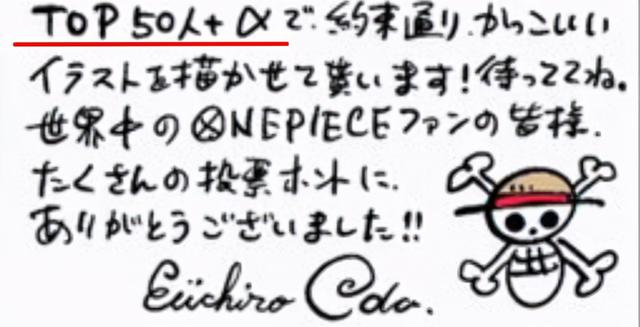 TOP50人+αで.約束通り.かっこいい
イラストを描かせて貰います!待っててね。
世界中のⓍNEPIECEファンの皆様.
たくさんの投票ホントに.
ありがとうございました!!
Eiichiro Oda.